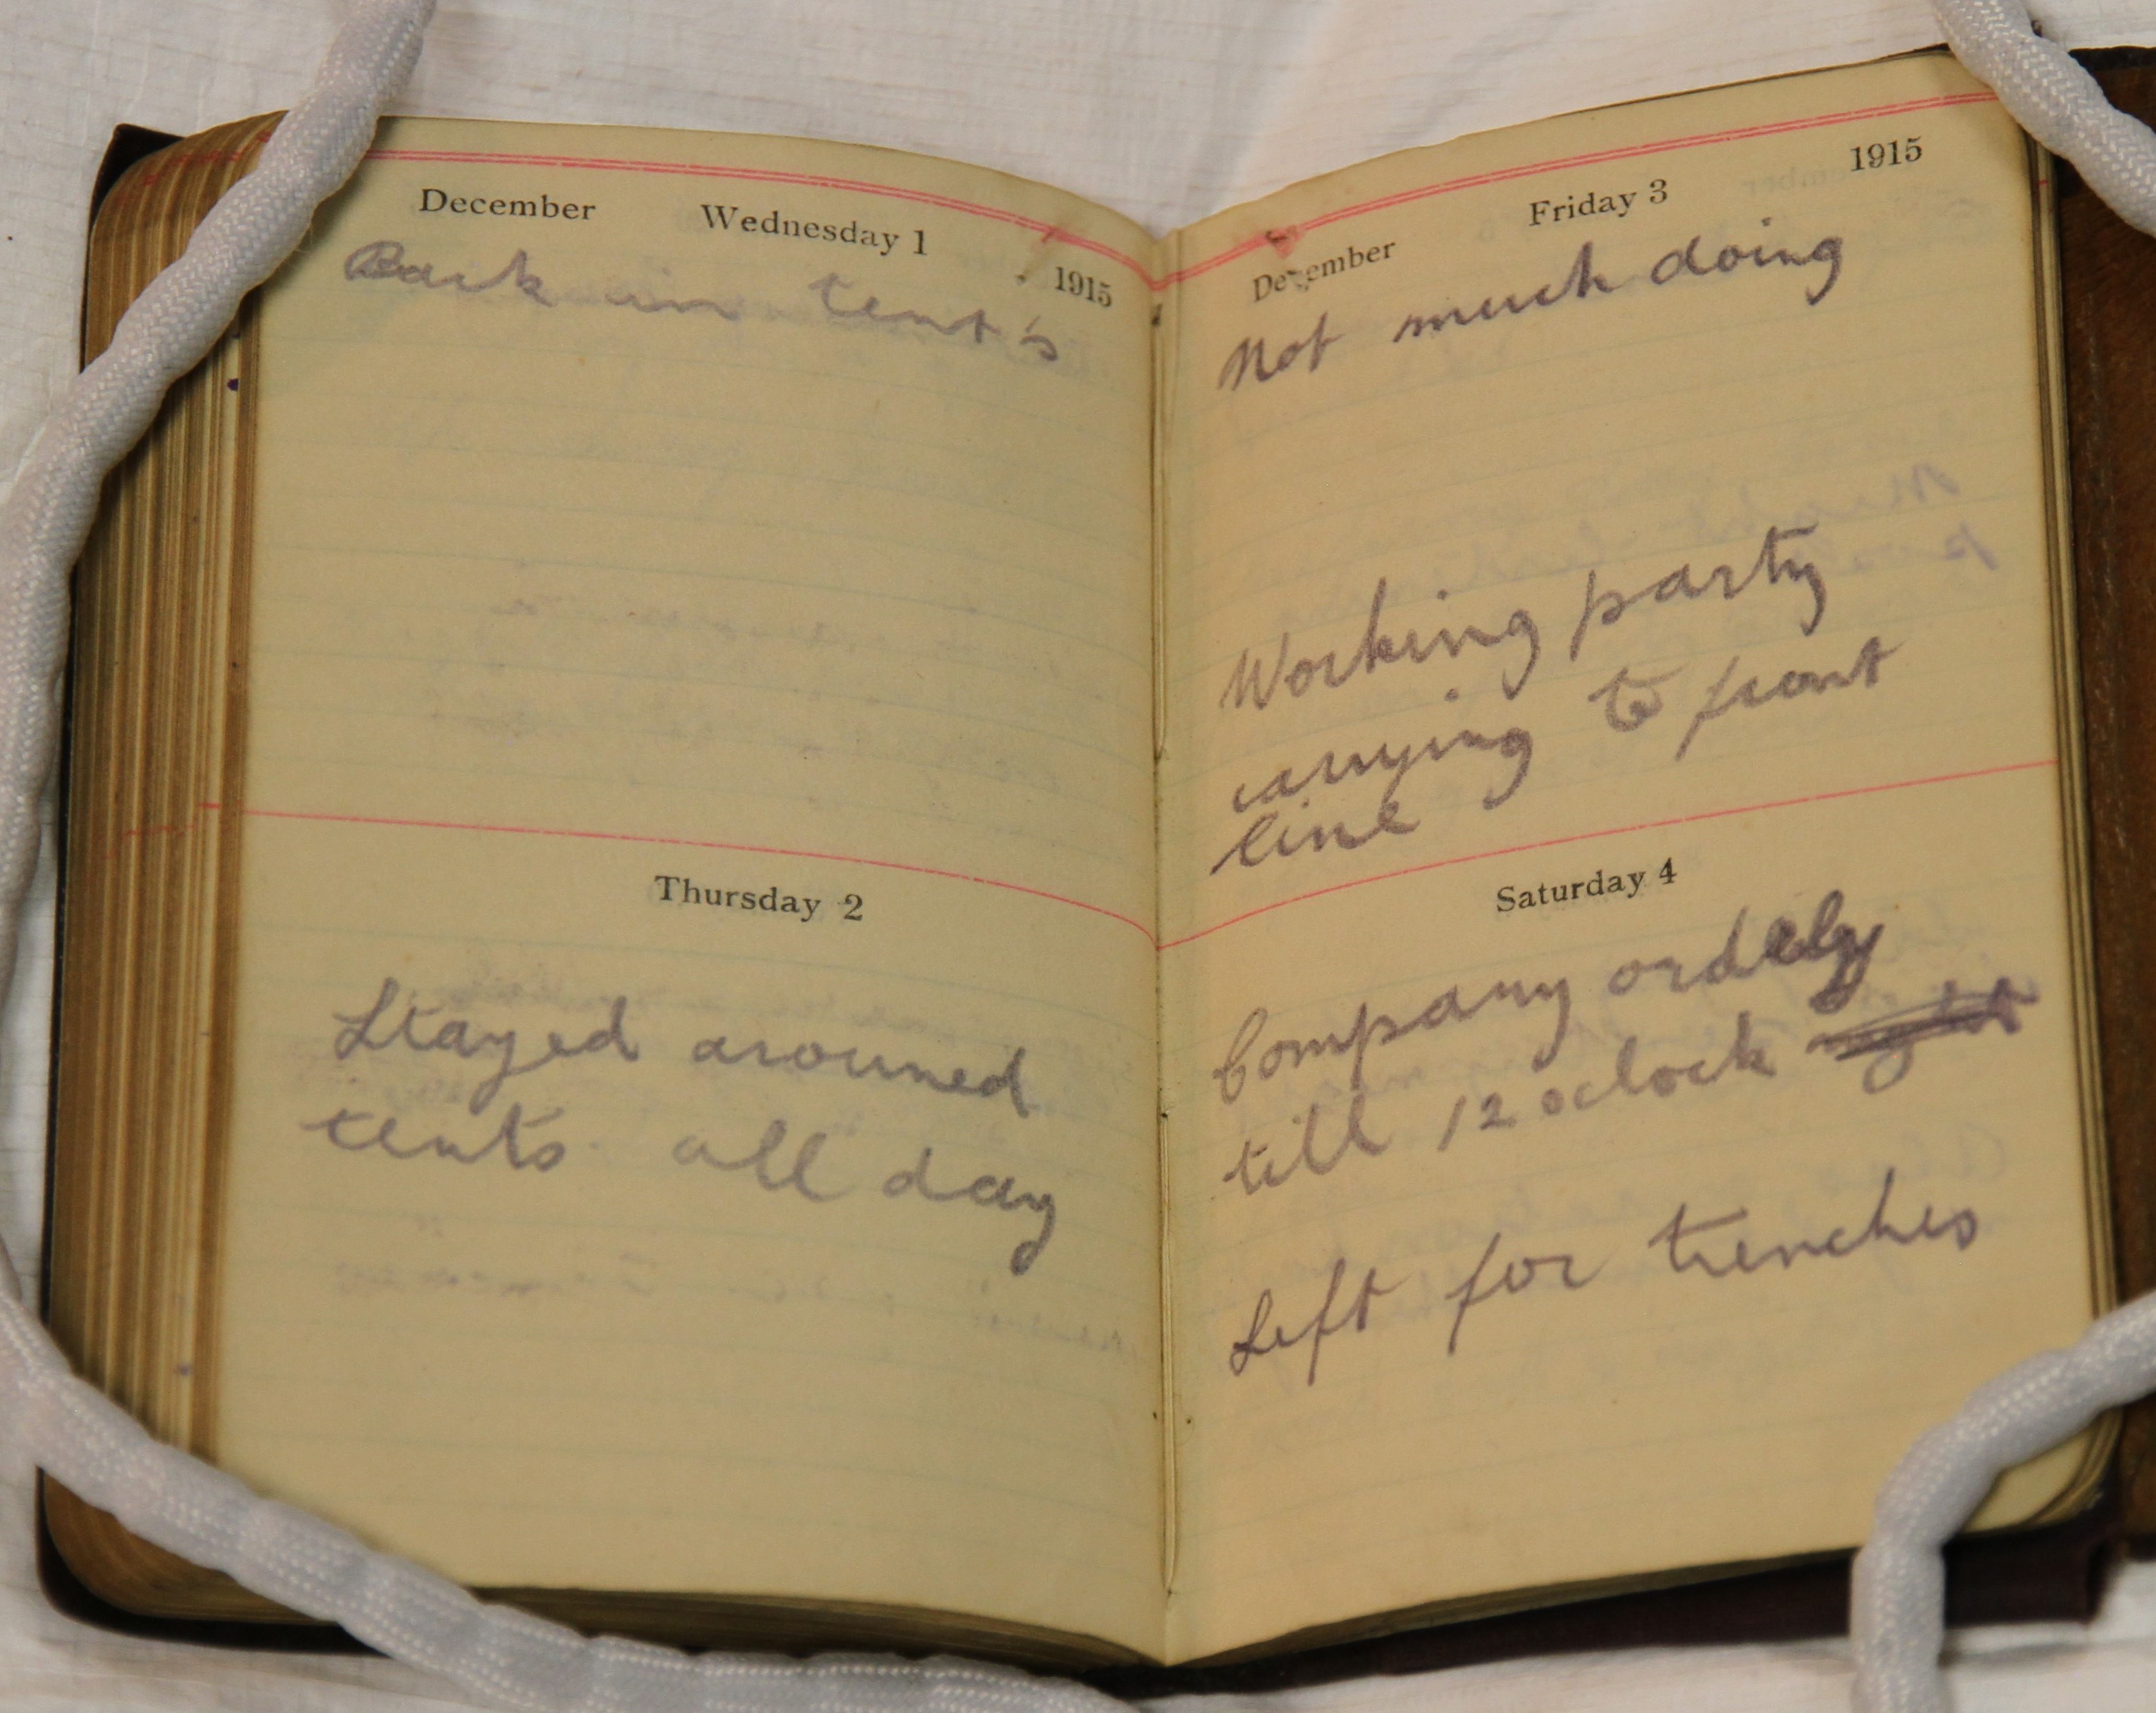 December Wednesday 1 1915
Back in tent's
Thursday 2
Stayed arouned
tents all day
December Friday 3 1915
Not much doing
Working party
carrying to front
line
Saturday 4
Company ordely
till 12 oclock
Left for trenches